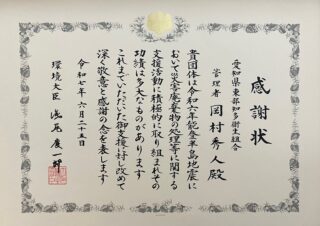 感謝状
愛知県東部知多衛生組合
管理者 岡村秀人殿
貴団体は令和六年能登半島地震に
おいて災害廃棄物の処理等に関する
支援活動に積極的に取り組まれその
功績は多大なものがあります
これまでいただいた御支援に対し改めて
深く敬意と感謝の念を表します
令和七年六月二十五日
環境大臣 浅尾慶一郎